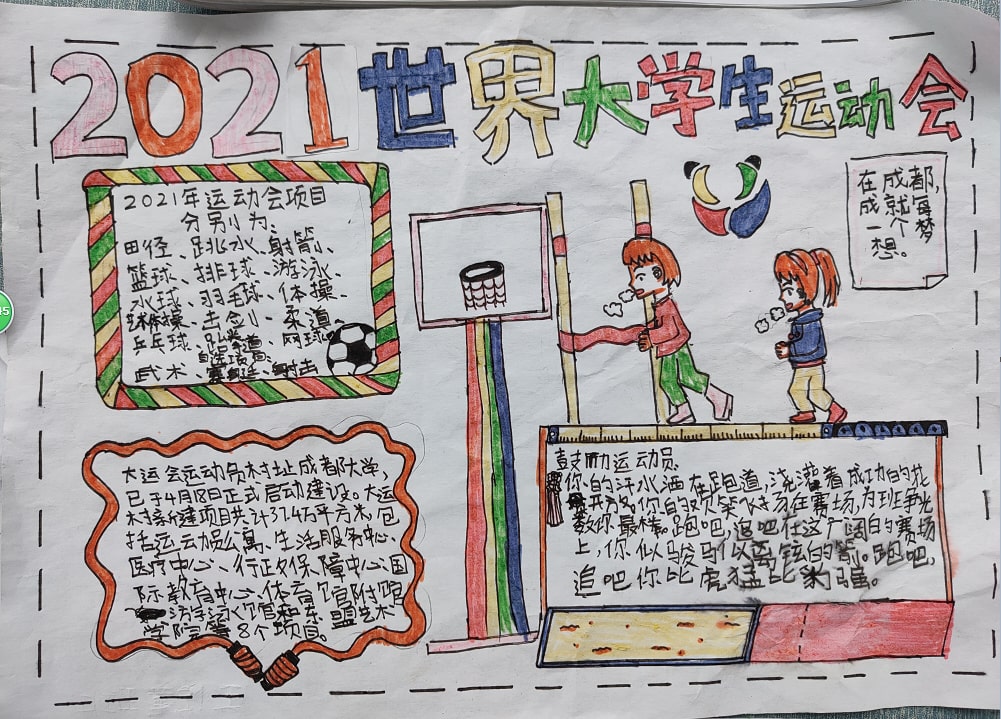 2021世界大学生运动会
2021年运动会项目
分别为:
田径、跳水、射箭、
篮球、排球、游泳、
水球、羽毛球、体操、
击剑、柔道、
乒乓球、跆拳道、网球。
自选项目:
武术、赛艇、射击
在成都,
成就每
一个梦
想。
大运会运动员村址成都大学,
已于4月18日正式启动建设。大运
村新建项目共计37.4万平方米,包
括运动员公寓、生活服务中心、
医疗中心、行政保障中心、国
际教育中心、体育馆附跑
游泳馆和东盟艺术
学院等8个项目。
鼓励运动员
你的汗水洒在跑道,浇灌着成功的花
开放。你的欢笑飞扬在赛场,为班争光
数你最棒。跑吧,追吧在这广阔的赛场
上,你似骏马似离弦的箭。跑吧,
追吧你比虎猛比豹强。
45